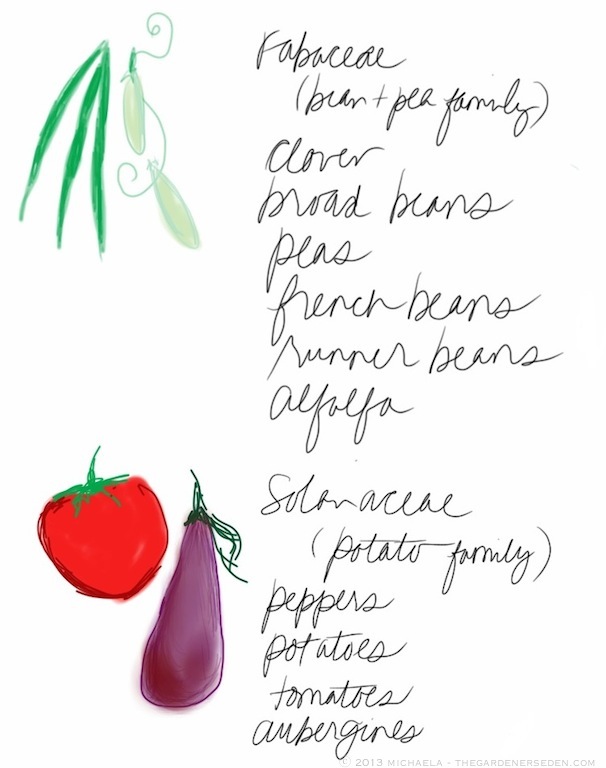 Fabaceae
(bean + pea family)
clover
broad beans
peas
french beans
runner beans
alfalfa
Solanaceae
(potato family)
peppers
potatoes
tomatoes
aubergines
© 2013 MICHAELA - THEGARDENERSEDEN.COM